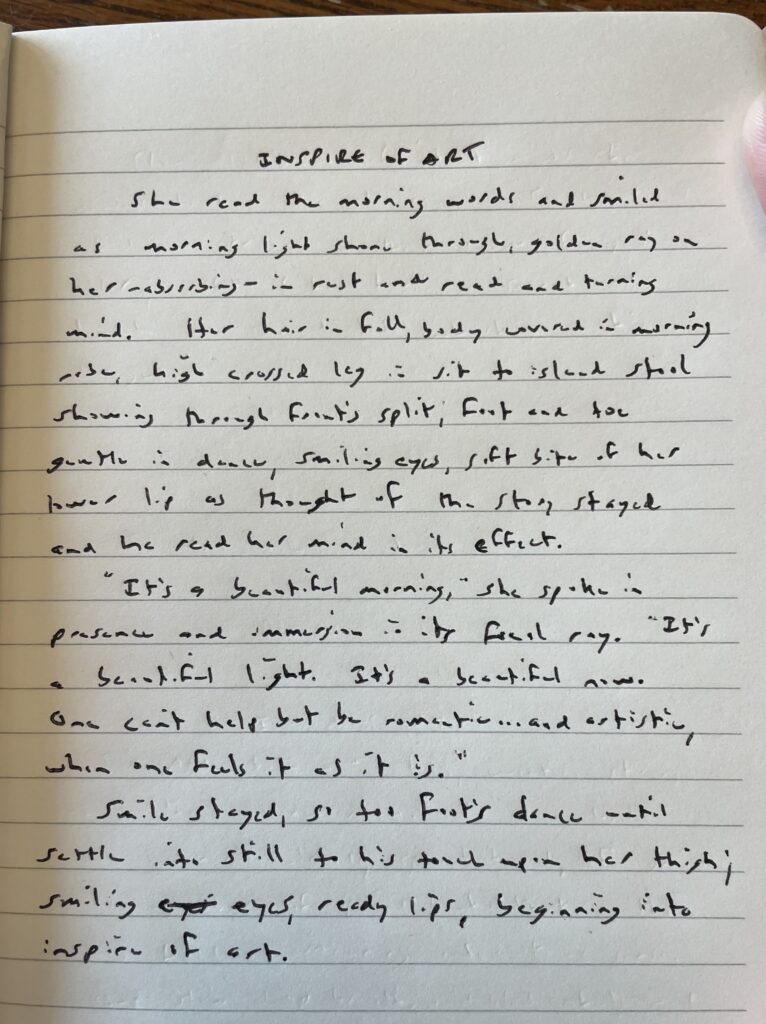 INSPIRE OF ART
She read the morning words and smiled
as morning light shone through, golden ray on
her - absorbing - in rest and read and turning
mind. Her hair in fall, body covered in morning
robe, high crossed leg in sit to island stool
showing through front's split, foot and toe
gentle in dance, smiling eyes, soft bite of her
lower lip as thought of the story stayed
and he read her mind in its effect.
"It's a beautiful morning," she spoke in
presence and immersion in its focal ray. "It's
a beautiful light. It's a beautiful now.
One can't help but be romantic... and artistic,
when one feels it as it is."
Smile stayed, so too foot's dance until
settle into still to his touch upon her thigh;
smiling eyes, ready lips, beginning into
inspire of art.